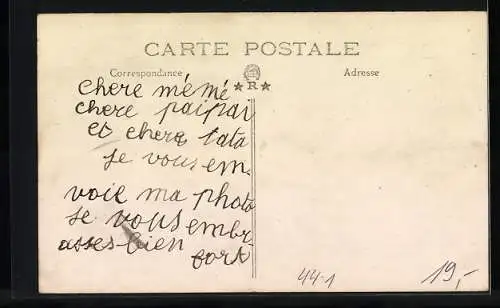 CARTE POSTALE
Correspondance
Adresse
★R★
chere mémé
chere paipai
et chere tata
je vous em.
voie ma photo
je vous embr.
asses bien
fort
44-1
19,-